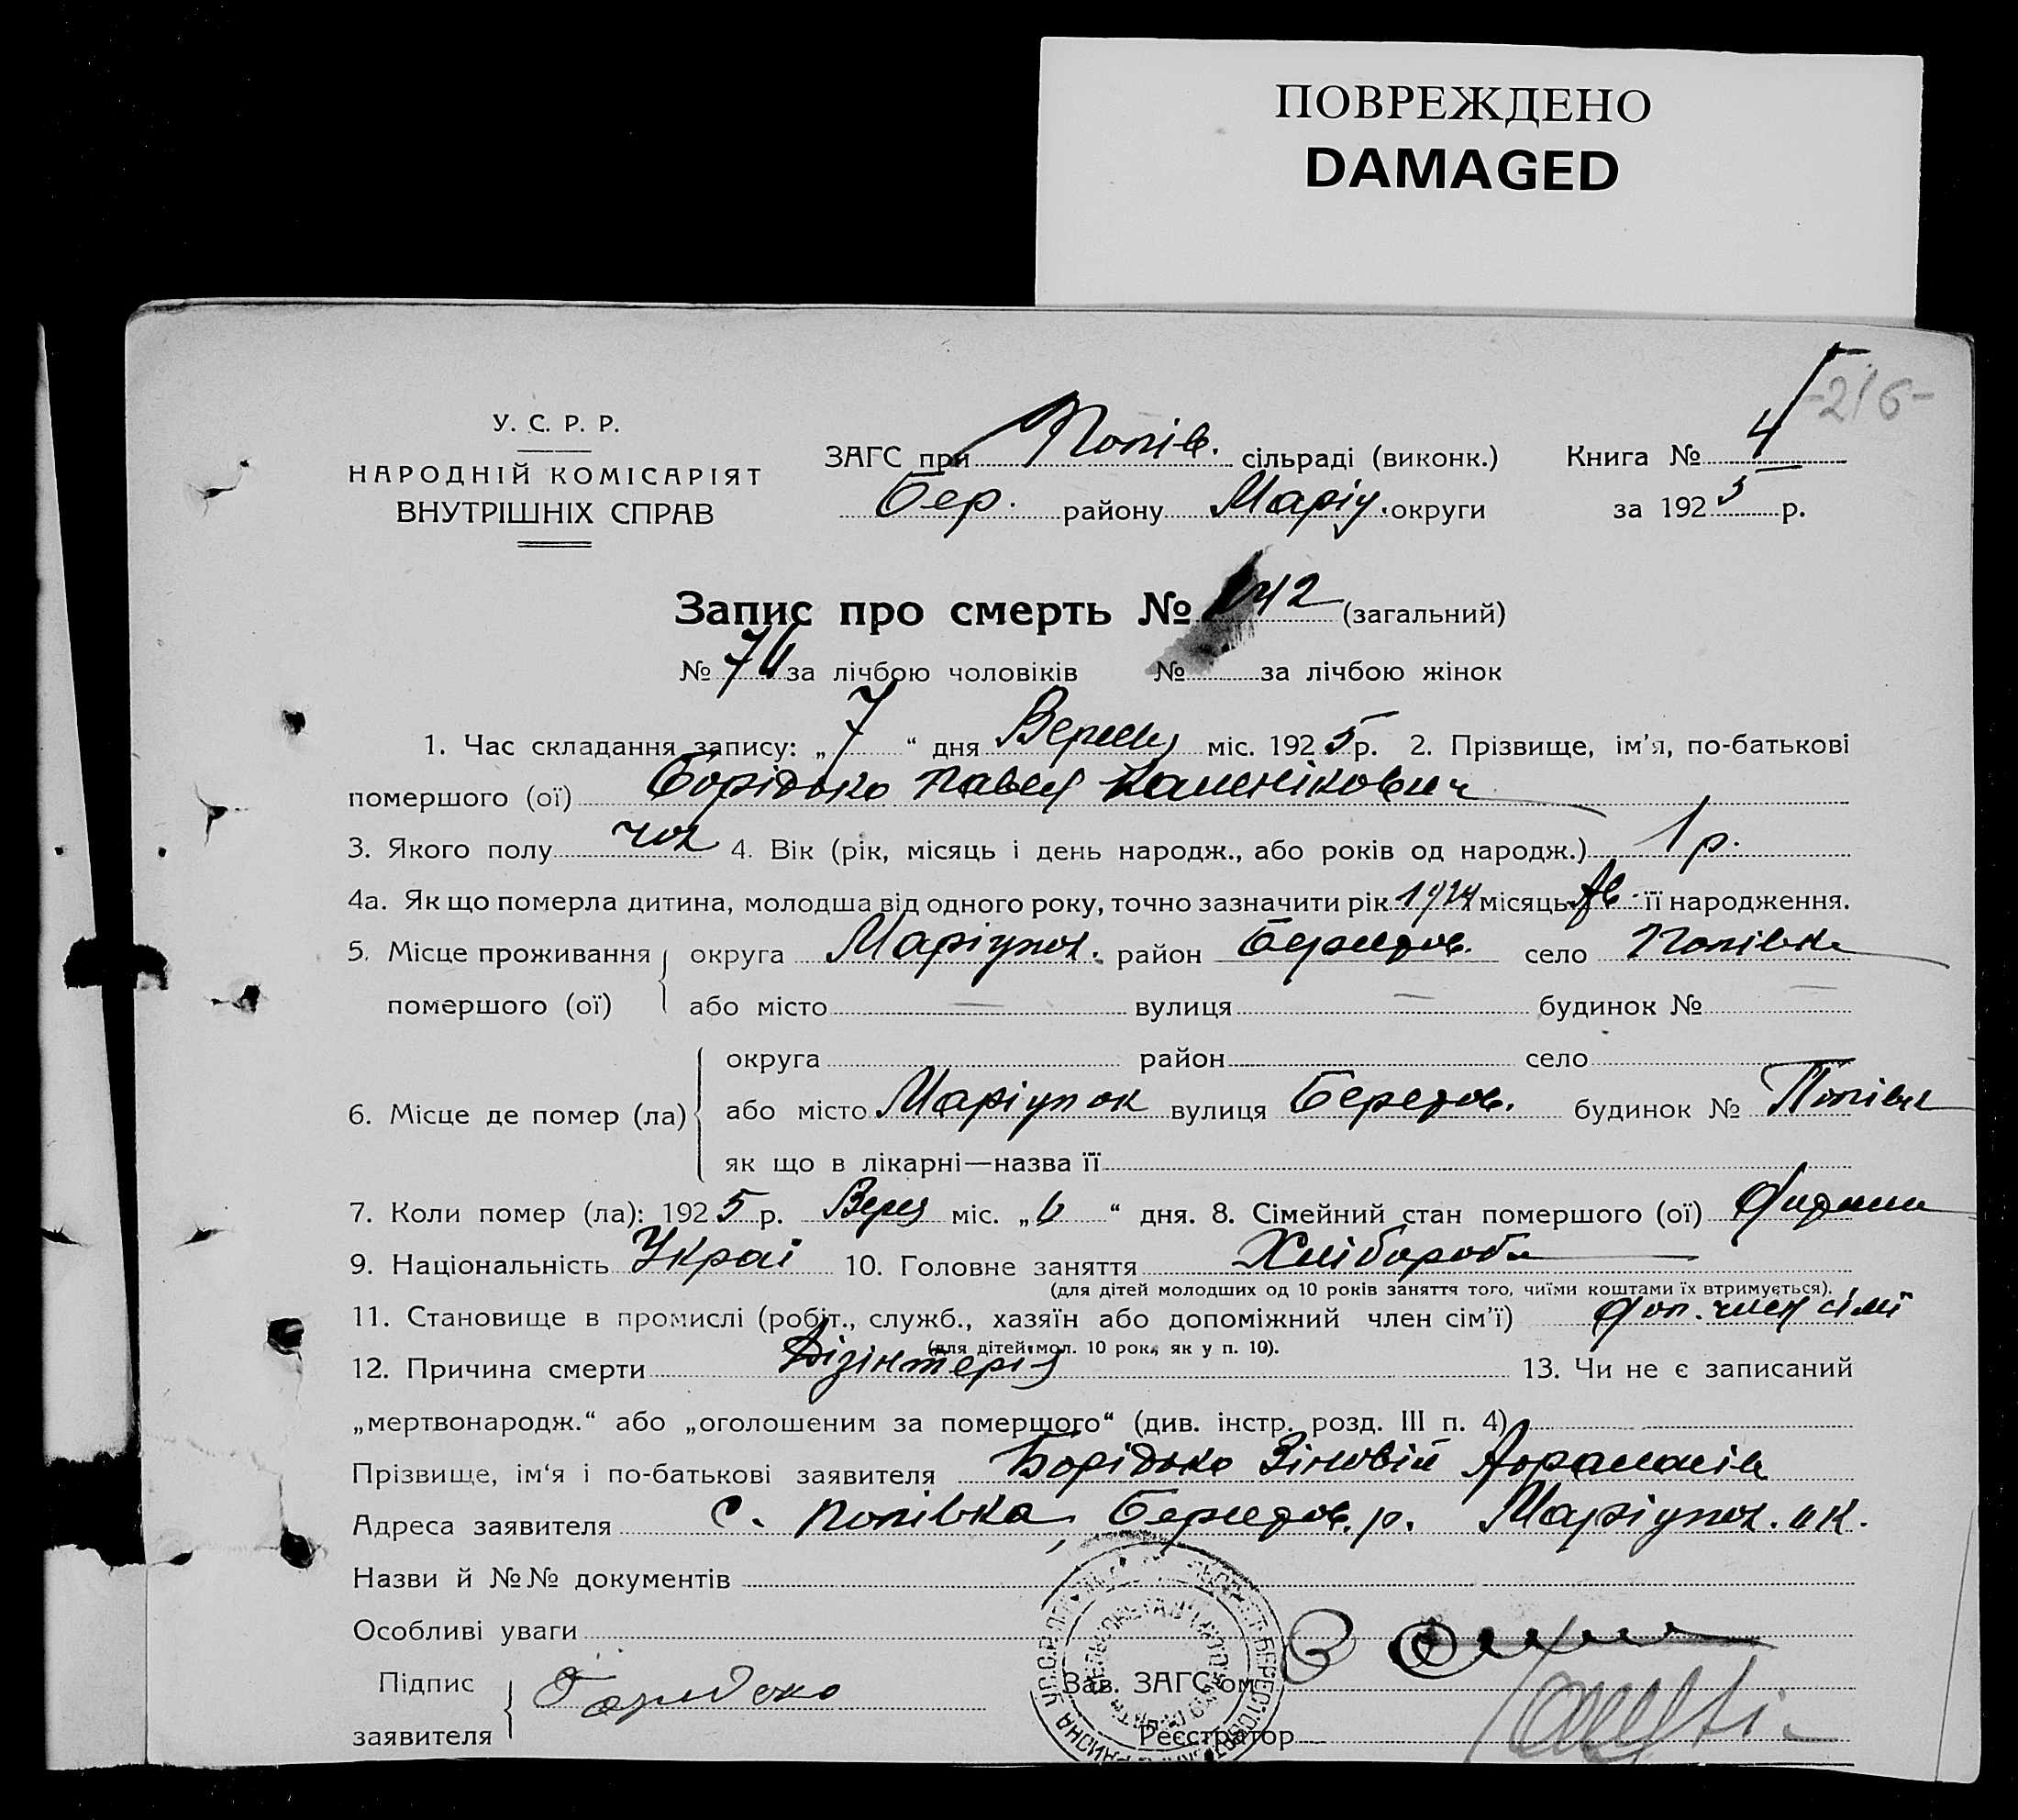 ПОВРЕЖДЕНО
DAMAGED
-216-
У. С. Р. Р.
НАРОДНІЙ КОМІСАРІЯТ
ВНУТРІШНІХ СПРАВ
ЗАГС при Попів. сільраді (виконк.) Книга № 4
Бер. району Маріу. округи за 1925 р.
Запис про смерть № 142 (загальний)
№ 74 за лічбою чоловіків № за лічбою жінок
1. Час складання запису: „7“ дня Вересня міс. 1925 р. 2. Прізвище, ім’я, по-батькові
помершого (ої) Борідько Павел
3. Якого полу чол 4. Вік (рік, місяць і день народж., або років од народж.) 1 р.
4а. Як що померла дитина, молодша від одного року, точно зазначити рік 1924 місяць Ав. її народження.
5. Місце проживання округа Маріупол. район Берестов. село Попівка
помершого (ої) або місто — вулиця — будинок № —
округа район село
6. Місце де помер (ла) або місто Маріупол вулиця Берестов. будинок № Попівк
як що в лікарні—назва її
7. Коли помер (ла): 1925 р. Верес міс. „6“ дня. 8. Сімейний стан помершого (ої) дитина
9. Національність Украі 10. Головне заняття Хлібороб
(для дітей молодших од 10 років заняття того, чиїми коштами їх втримується).
11. Становище в промислі (робіт., служб., хазяїн або допоміжний член сім’ї) доп. член сімї
(для дітей мол. 10 рок., як у п. 10).
12. Причина смерти Дізінтерія 13. Чи не є записаний
„мертвонародж.“ або „оголошеним за помершого“ (див. інстр. розд. III п. 4)
Прізвище, ім‘я і по-батькові заявителя Борідько Зіновій
Адреса заявителя с. Попівка, Берестов. р. Маріупол. ок.
Назви й №№ документів
Особливі уваги
Підпис заявителя Боридько Зав. ЗАГС‘ом
Реєстратор